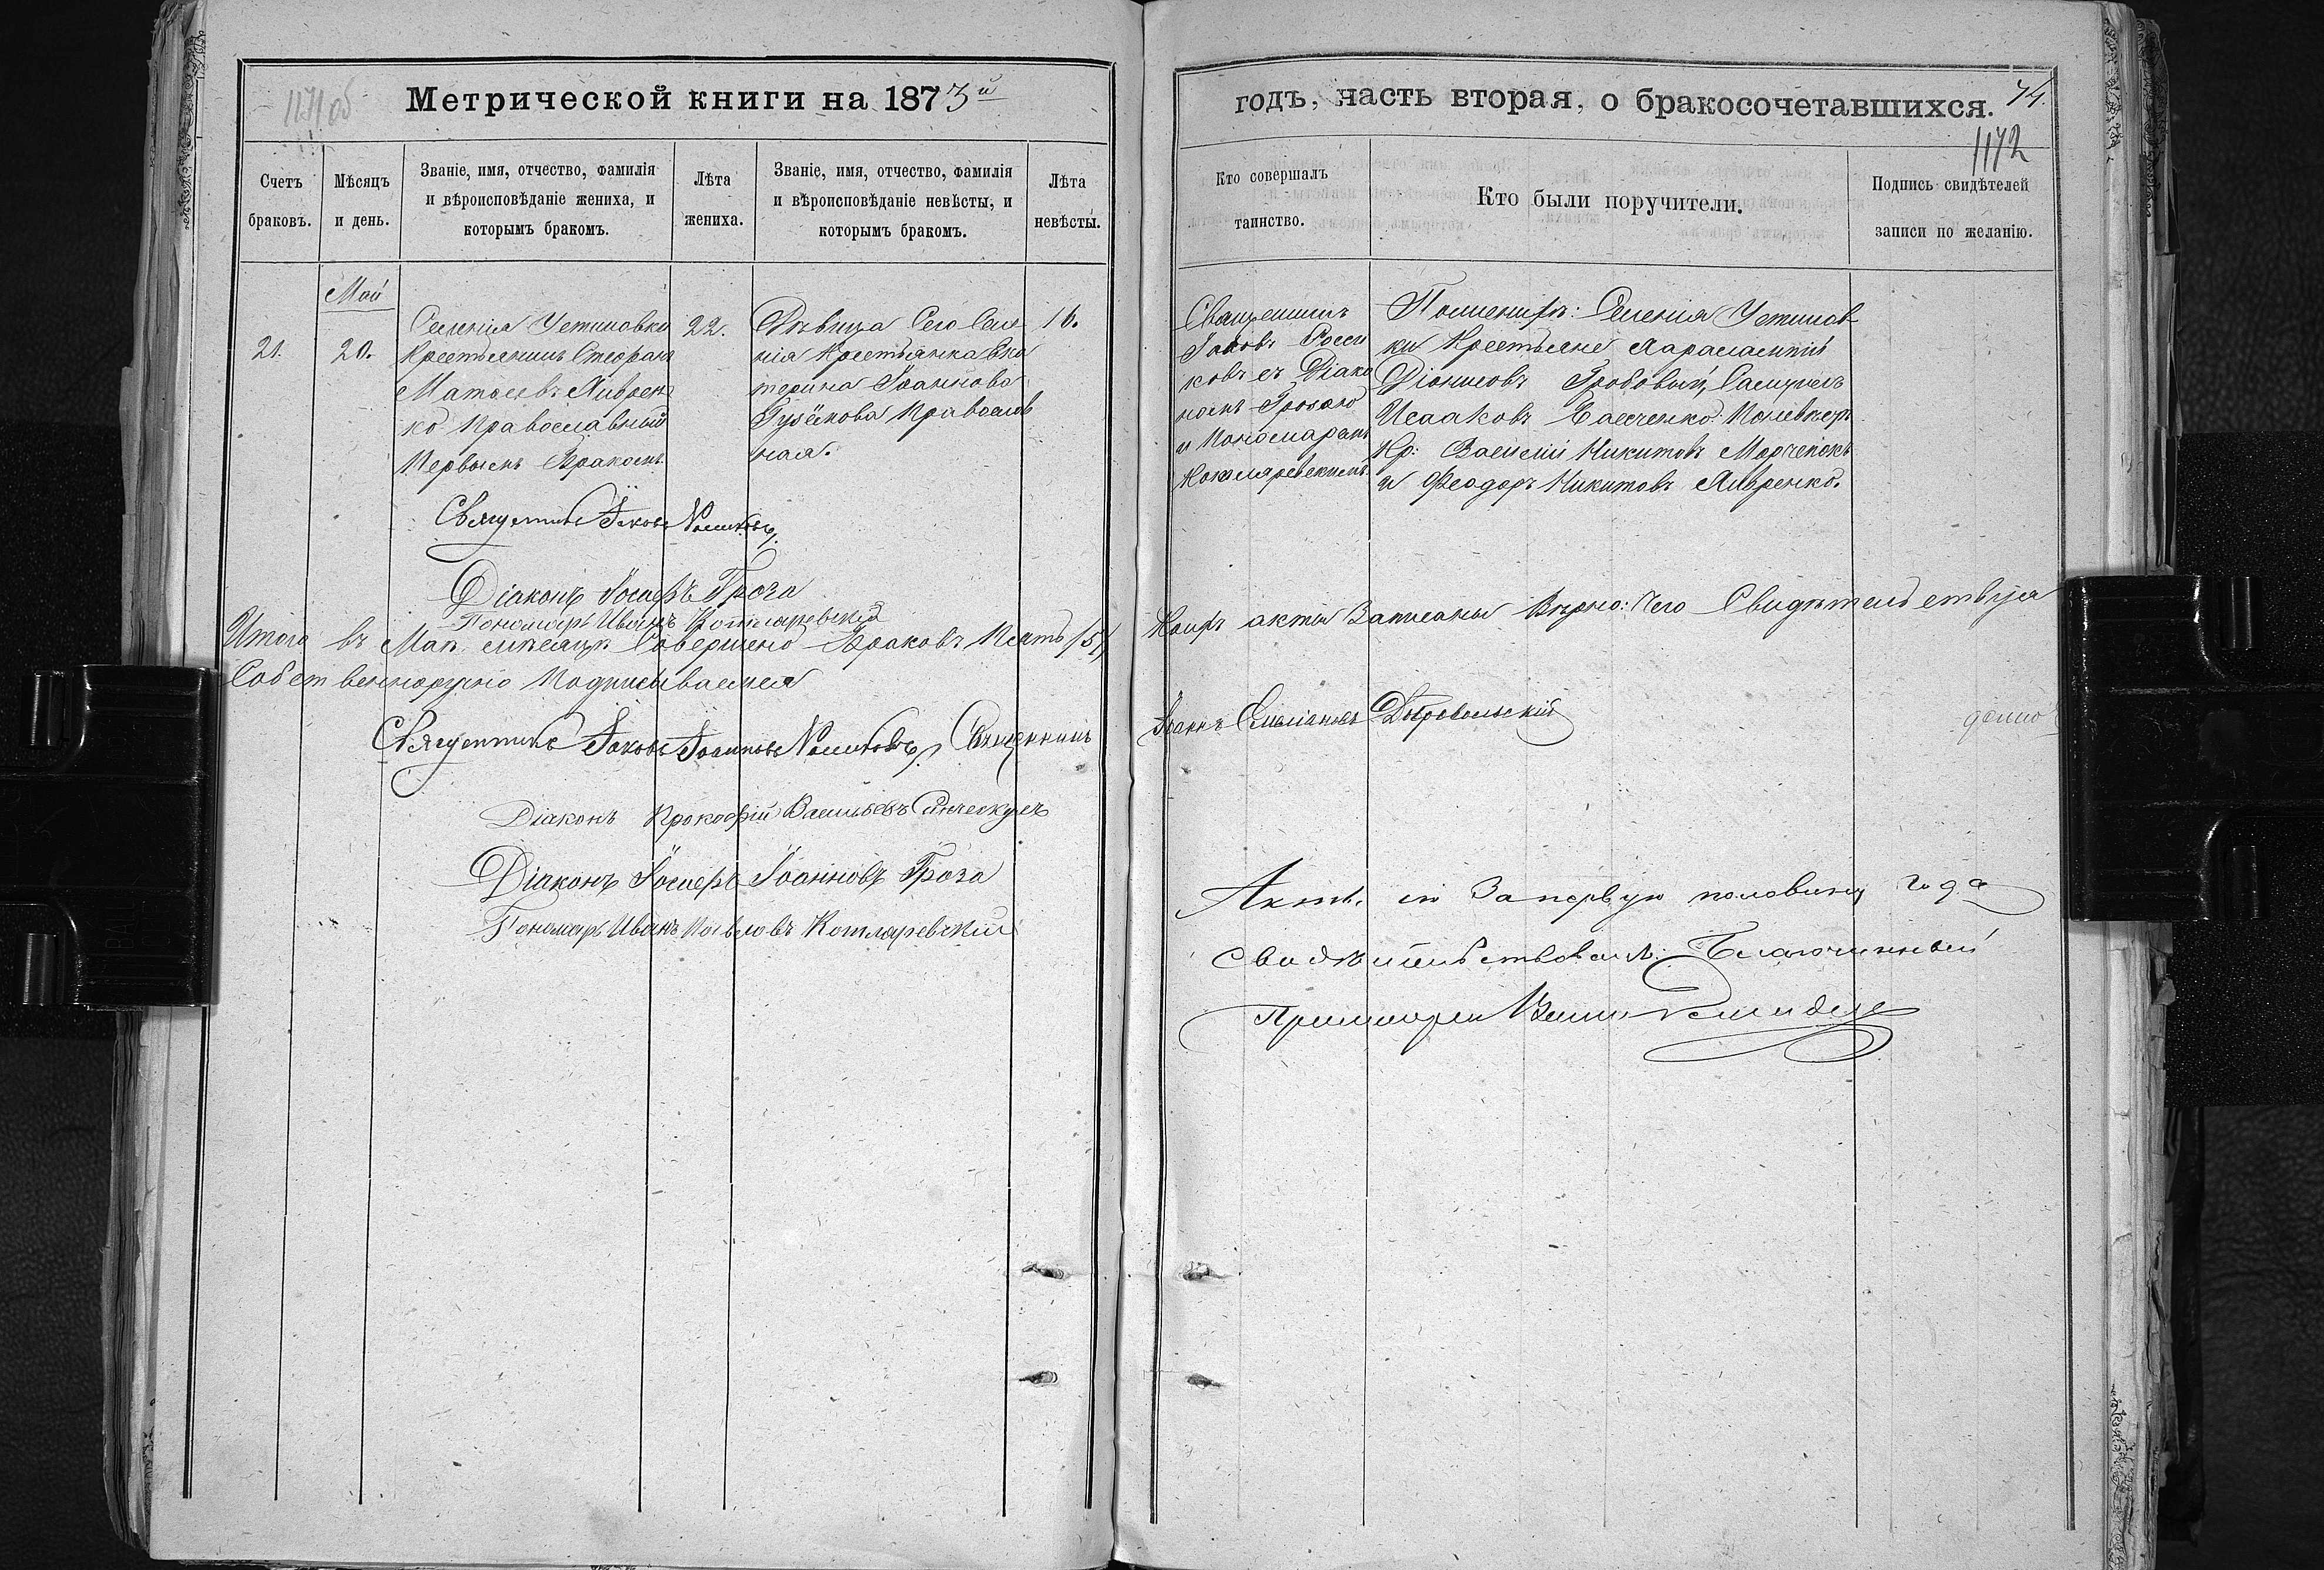 1171 об
Метрической книги на 1873й
Счетъ браковъ.
Мѣсяцъ и день.
Званіе, имя, отчество, фамилія и вѣроисповѣданіе жениха, и которымъ бракомъ.
Лѣта жениха.
Званіе, имя, отчество, фамилія и вѣроисповѣданіе невѣсты, и которымъ бракомъ.
Лѣта невѣсты.
Май
21.
20.
Селенія Устиновки
Крестьянинъ Стефанъ
Матѳеевъ Лавренко
ко Православный
Первымъ Бракомъ.
22.
Дѣвица Сего Селе
нія Крестьянка Ека
терина Іоаннова
Гусёкова Православ
ная.
16.
Священникъ Іаковъ
Діаконъ Іосифъ Гроза
Пономарь Иванъ Котляревскій
Итого въ Маѣ мѣсяцѣ Совершено Браковъ Пять /5/
Собственноручно Подписываемся
Священникъ Іаковъ Священникъ
Діаконъ Прокофій Васильевъ
Діаконъ Іосифъ Іоанновъ Гроза
Пономарь Иванъ Павловъ Котляревскій
годъ, часть вторая, о бракосочетавшихся.
74.
1172
Кто совершалъ таинство.
Кто были поручители.
Подпись свидѣтелей записи по желанію.
Священникъ
Іаковъ
ковъ съ Діако
номъ Грозою
и Пономаремъ
Котляревскимъ
По женихѣ: Селенія Устинов
ки Крестьяне Харалампій
Діонисовъ Гробовый, Самуилъ
Исааковъ По невѣстѣ
Кр: Василій Никитовъ
и Феодоръ Никитовъ Лавренко.
акты Записаны Вѣрно: Чего Свидѣтельствуя
Іоаннъ Емиліановъ Добровольскій
Акты сіи За первую половину года
свидѣтельствовалъ: Благочинный